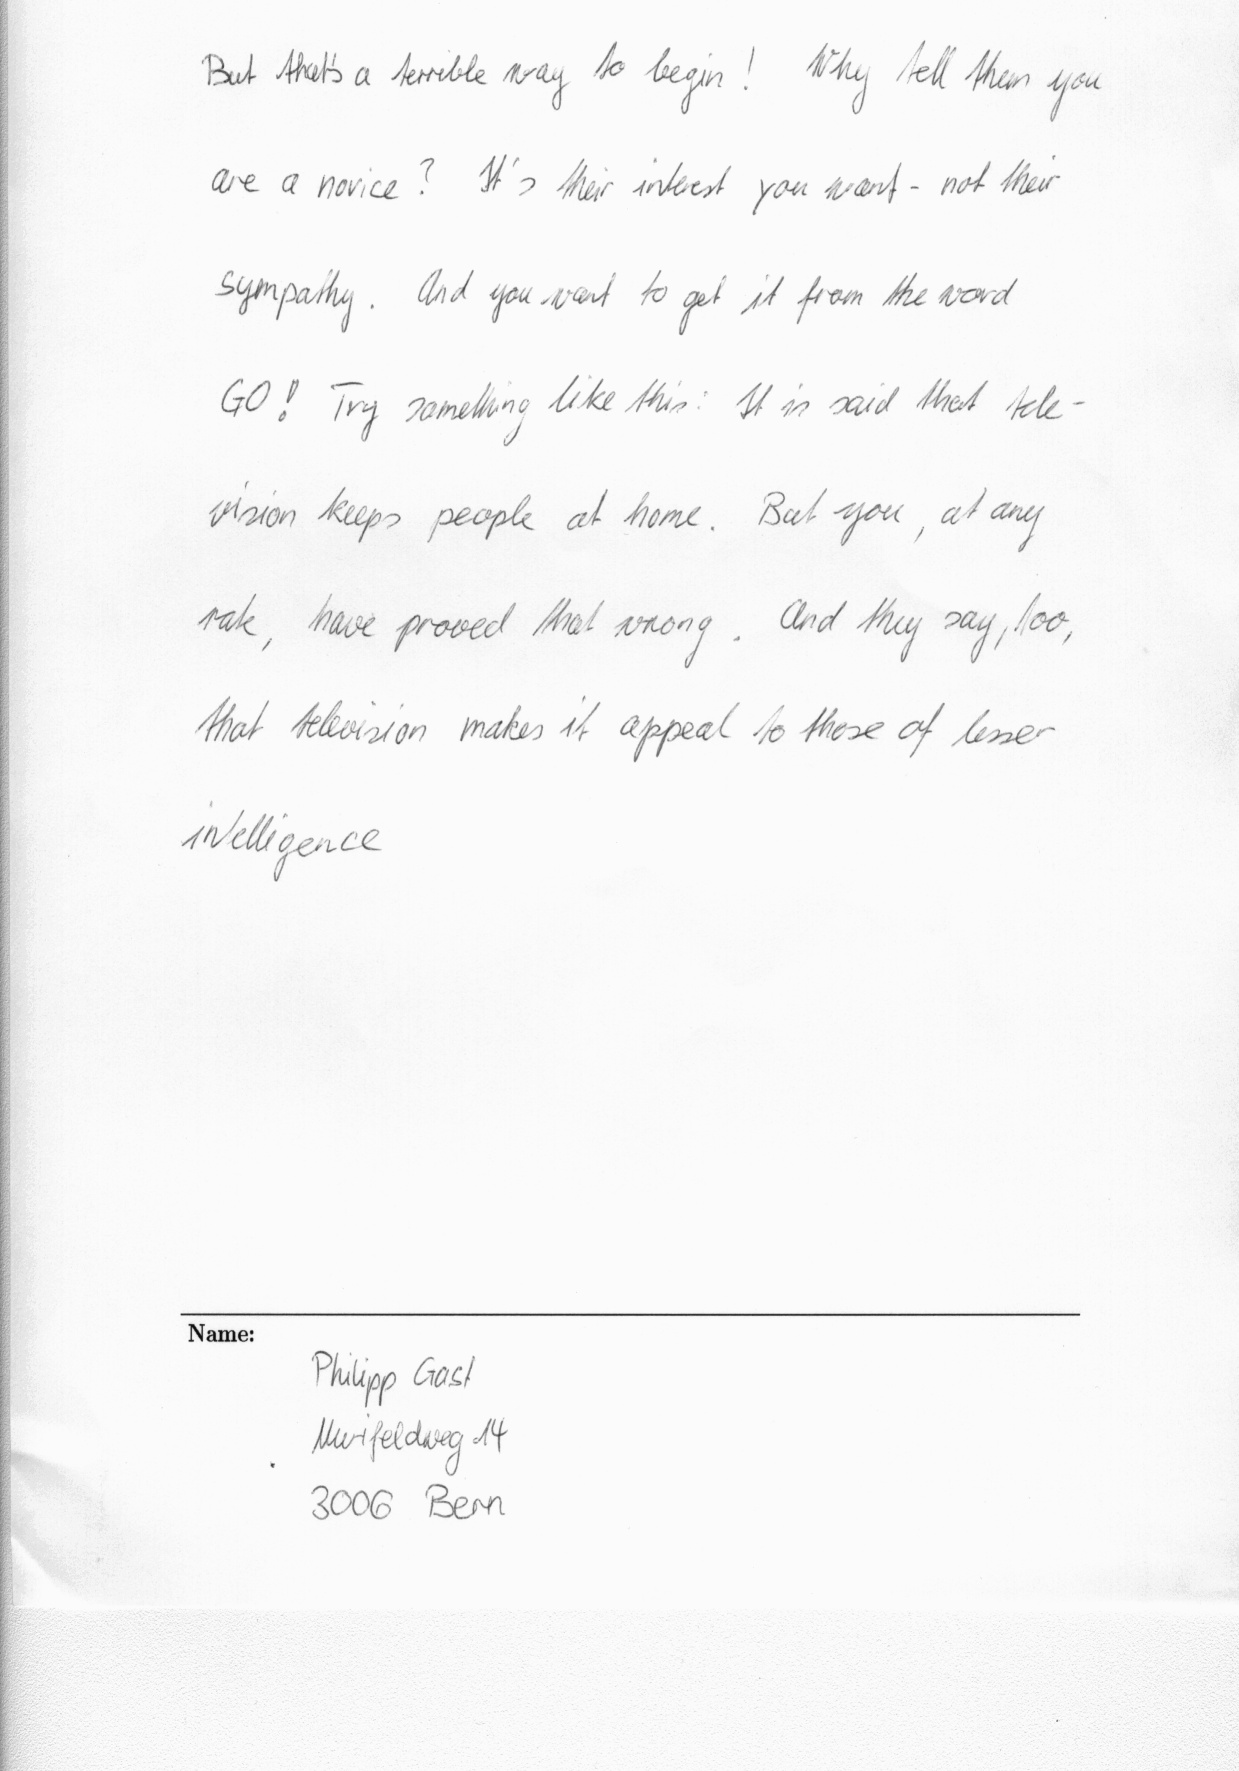 But that's a terrible way to begin! Why tell them you
are a novice? It's their interest you want - not their
sympathy. And you want to get it from the word
GO! Try something like this: It is said that tele-
vision keeps people at home. But you, at any
rate, have proved that wrong. And they say, too,
that television makes it appeal to those of lesser
intelligence
Name:
Philipp Gast
Murifeldweg 14
3006 Bern